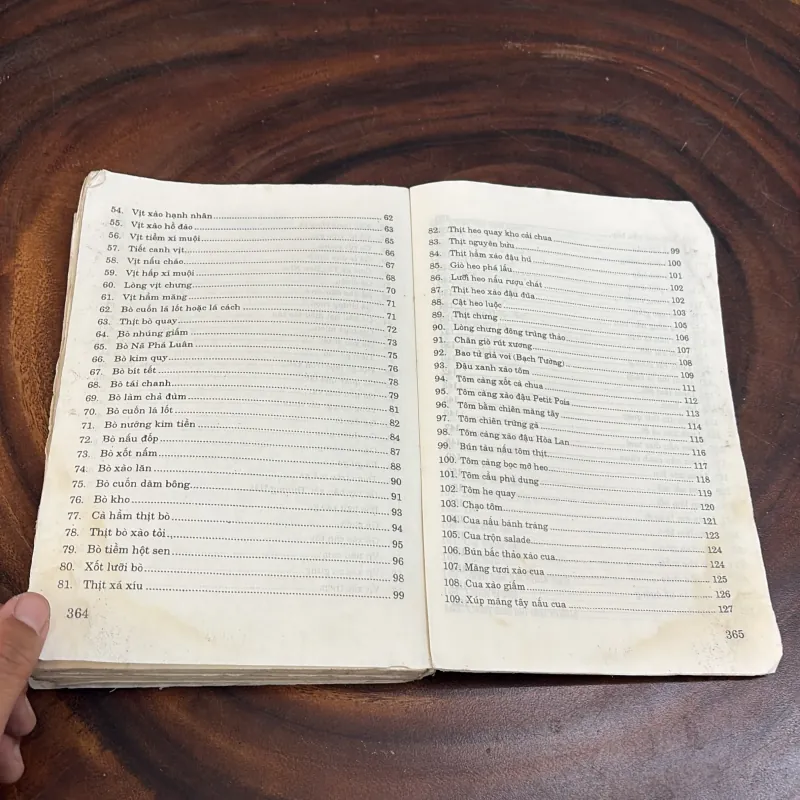 54. Vịt xảo hạnh nhân 62
55. Vịt xảo hồ đào 63
56. Vịt tiềm xí muội 65
57. Tiết canh vịt 66
58. Vịt nấu cháo 67
59. Vịt hấp xí muội 68
60. Lòng vịt chưng 70
61. Vịt hầm măng 71
62. Bò cuốn lá lốt hoặc lá cách 71
63. Thịt bò quay 72
64. Bò nhúng giấm 73
65. Bò Nã Phá Luân 75
66. Bò kim quy 76
67. Bò bít tết 78
68. Bò tái chanh 79
69. Bò làm chả đúm 81
70. Bò cuốn lá lốt 82
71. Bò nướng kim tiền 84
72. Bò nấu đốp 87
73. Bò xốt nấm 88
74. Bò xào lăn 90
75. Bò cuốn dăm bông 91
76. Bò kho 93
77. Cà hầm thịt bò 94
78. Thịt bò xào tỏi 95
79. Bò tiềm hột sen 96
80. Xốt lưỡi bò 98
81. Thịt xá xíu 99
364
82. Thịt heo quay kho cải chua 99
83. Thịt nguyên bưu 100
84. Thịt hầm xáo đậu hủ 101
85. Giò heo phá lấu 102
86. Lưỡi heo nấu rượu chát 102
87. Thịt heo xào đậu đũa 103
88. Cật heo luộc 105
89. Thịt chưng 106
90. Lòng chưng đông trùng thảo 107
91. Chân giò rút xương 108
92. Bao tử giả voi (Bạch Tường) 109
93. Đậu xanh xáo tôm 111
94. Tôm càng xốt cà chua 112
95. Tôm càng xáo đậu Petit Pois 113
96. Tôm bằm chiên măng tây 114
97. Tôm chiên trứng gà 115
98. Tôm càng xáo đậu Hòa Lan 116
99. Bún tàu nấu tôm thịt 117
100. Tôm càng bọc mỡ heo 118
101. Tôm cầu phù dung 119
102. Tôm he quay 120
103. Chạo tôm 121
104. Cua nấu bánh tráng 123
105. Cua trộn salade 124
106. Bún bắc thảo xáo cua 124
107. Măng tươi xáo cua 125
108. Cua xáo giấm 126
109. Xúp măng tây nấu cua 127
365